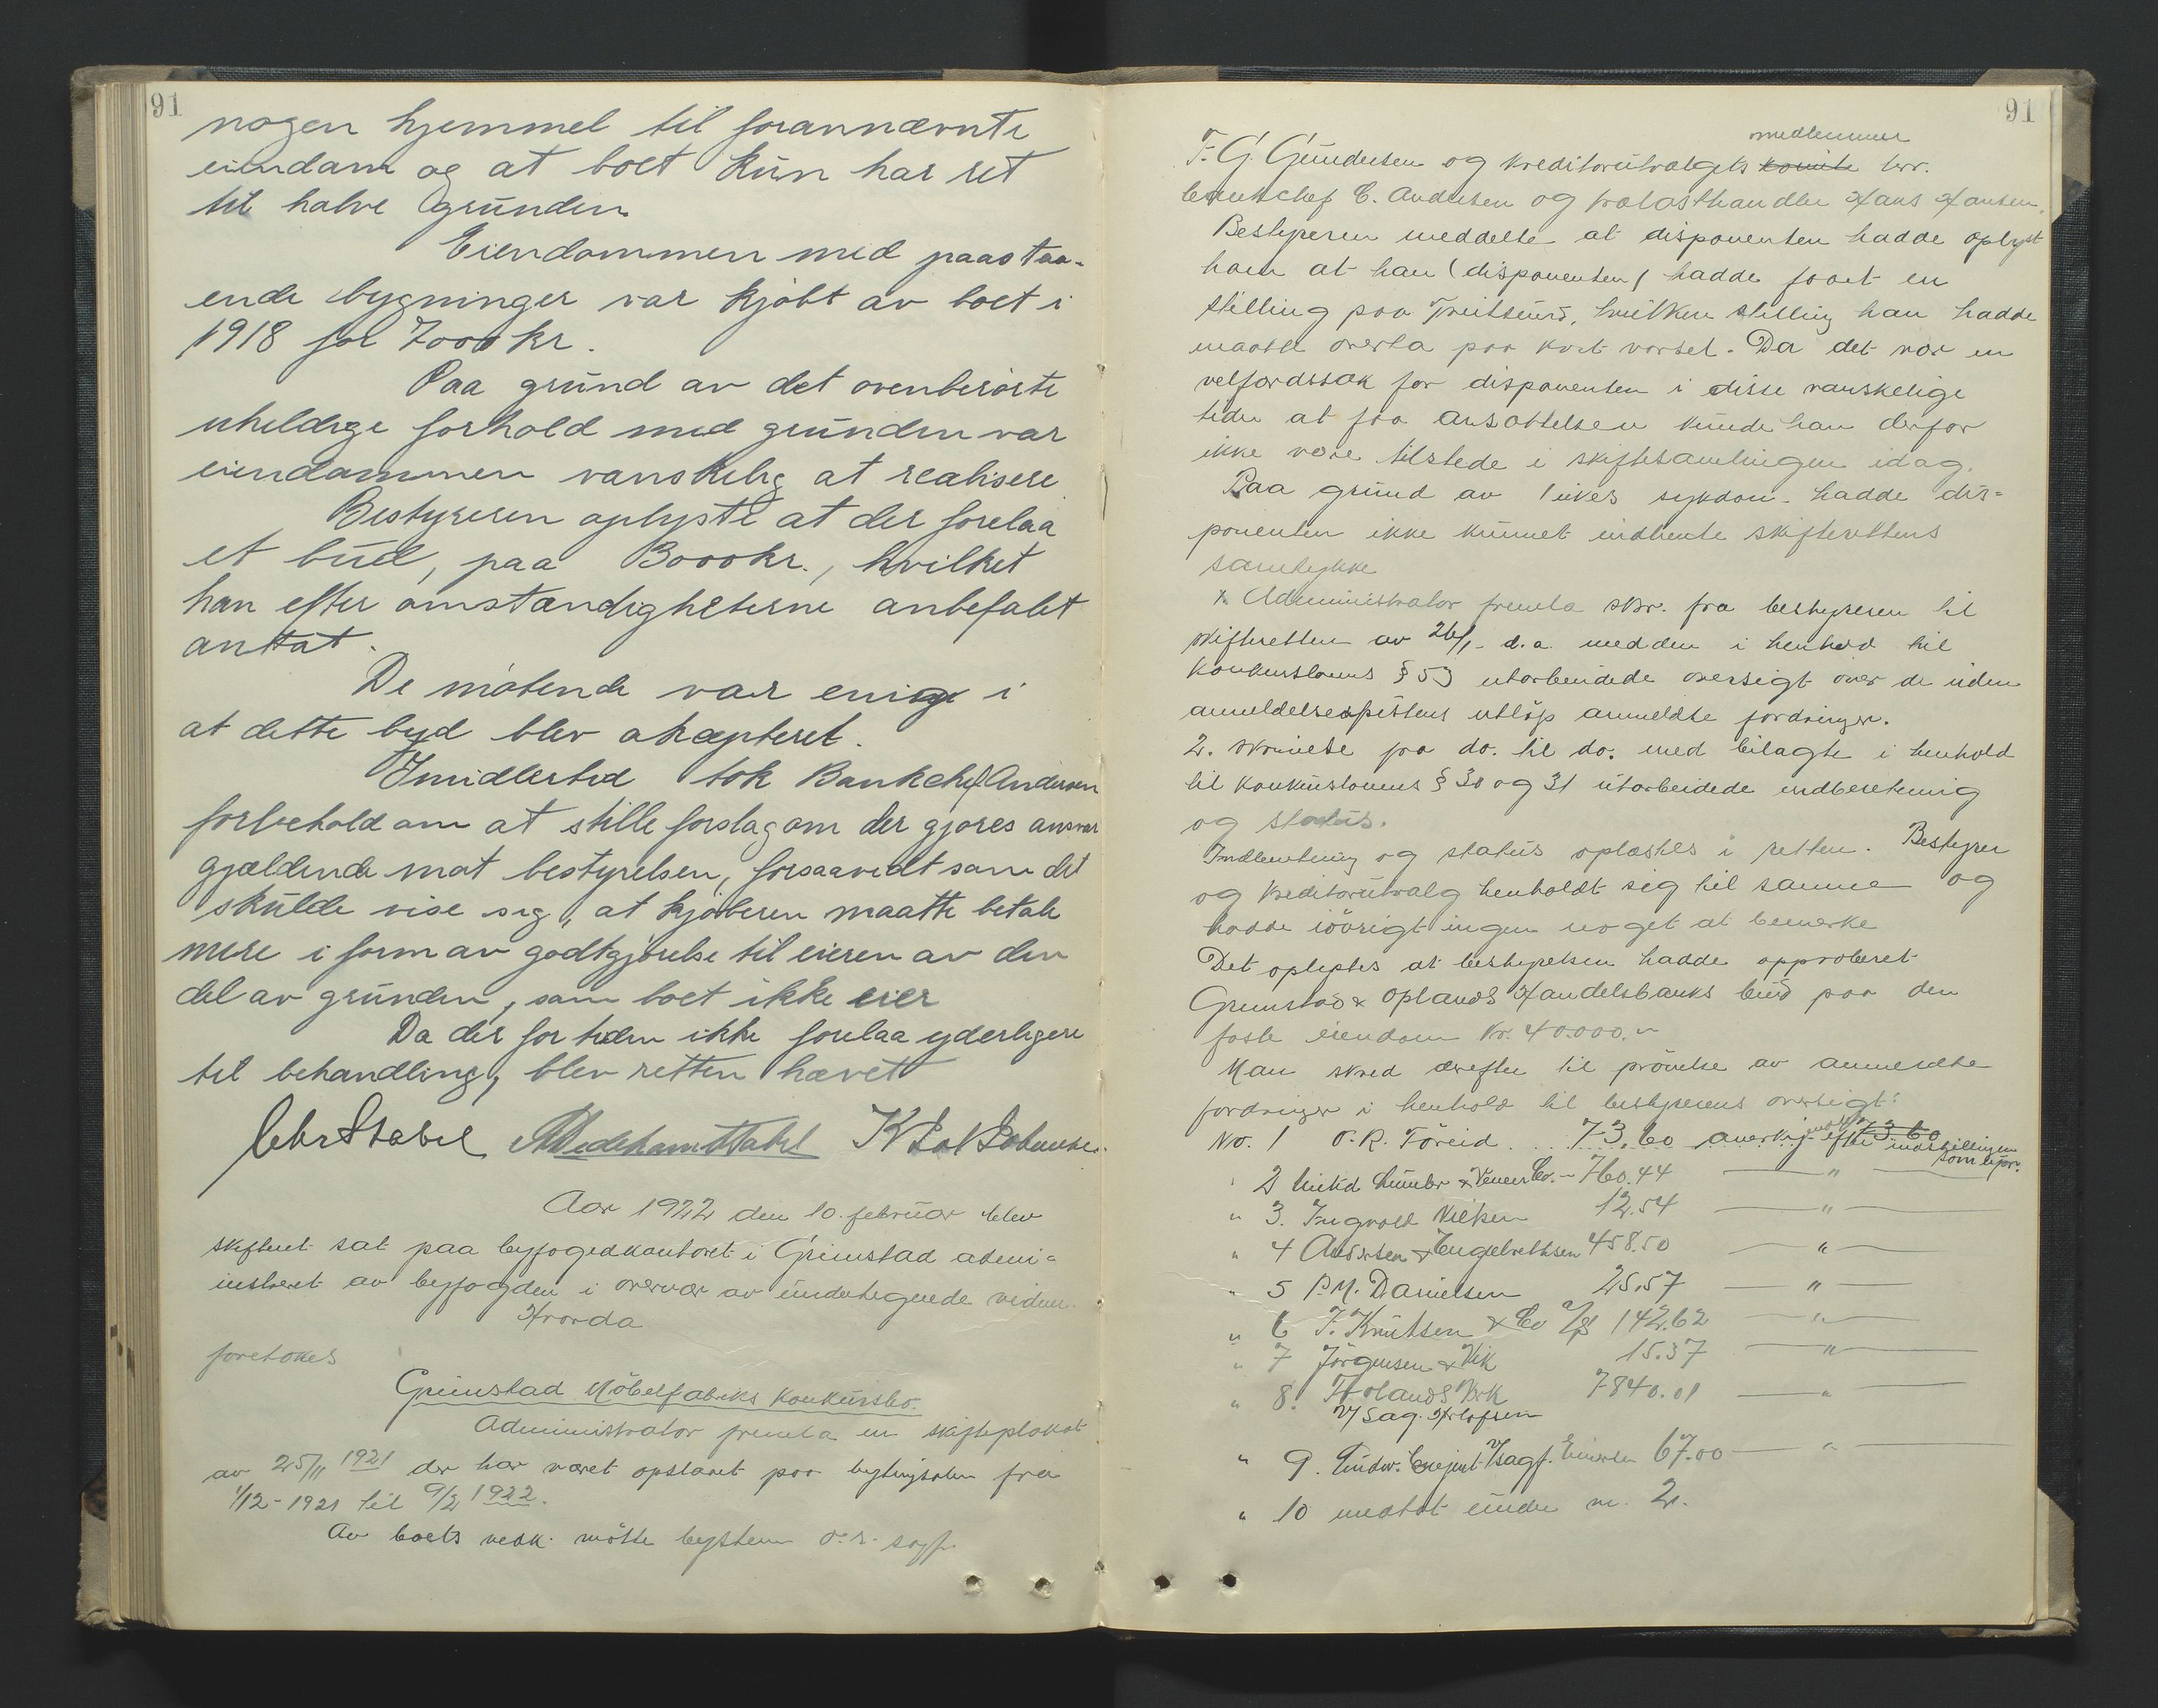 91
nogen hjemmel til forannævnte
eiendam og at boet kun har ret
til halve grunden
Eiendommen med paastaa-
ende bygninger var kjøbt av boet i
1918 for 7000 kr.
Paa grund av det ovenberørte
uheldige forhold med grunden var
eiendammen vanskelig at realisere
Bestyreren oplyste at der forelaa
et bud, paa 3000kr., hvilket
han efter omstændigheterne anbefalet
anttat.
De møtende var enige i
at dette byd blev akcepteret.
Imidlertid tok Bankchef Andersen
forbehold om at stille forslag om der gjøres ansvar
gjældende mot bestyrelsen, forsaavidt som det
skulde vise sig, at kjøberen maatte betale
mere i form av godtgjørelse til eieren av den
del av grunden, som boet ikke eier
Da der for tiden ikke forelaa yderligere
til behandling, blev retten hævet
Chr Stabel
Aar 1922 den 10. februar blev
skifteret sat paa byfogedkontoret i Grimstad admi-
nistreret av byfogden i overvær av undertegnede vidner.
Hvorda
foretokes
Grimstad Möbelfabriks konkursbo.
Administrator fremla en skifteplakat
av 25/11 1921 der har været opslaaet paa bytingsalen fra
1/12-1921 til 9/2 1922.
Av boets vedk. mötte bestyreren o.r. sagf.
91
F. G. Gundersen og kreditorutvalgets komite medlemmer hrr.
bankchef C. Andersen og trælasthandler Hans Hansen.
Bestyreren meddelte at disponenten hadde oplyst
ham at han (disponenten) hadde faaet en
stilling paa , hvilken stilling han hadde
maatte overta paa kort varsel. Da det var en
velfærdssak for disponenten i disse vanskelige
tider at faa ansættelsen kunde han derfor
ikke være tilstede i skiftesamlingen idag.
Paa grund av sykdom hadde dis-
ponenten ikke kunnet indhente skifterettens
samtykke
1. Administrator fremla skr. fra bestyreren til
skifteretten av 26/1 d.a. med den i henhold til
konkurslovens § 53 utarbeidede oversigt over de inden
anmeldelsesfristens utløp anmeldte fordringer.
2. skrivelse fra do. til do. med bilagte i henhold
til konkurslovens § 30 og 31 utarbeidede indberetning
og status.
Indberetning og status oplæstes i retten. Bestyrer
og kreditorutvalg henholdt sig til samme og
hadde iövrigt ingen noget at bemerke
Det oplystes at bestyrelsen hadde approberet
Grimstad & Oplands Handelsbanks bud paa den
faste eiendom kr. 40.000.-
Man skred derefter til prövelse av anmeldte
fordringer i henhold til bestyrerens oversigt:
No. 1 O. R. Föreid .. 73.60 anerkj. efter indstillingen som upr. 73.60
" 2 United Lumber & Veneer Co. - 760.44 — " —
" 3. Ingvald Nilsen 12.54 — " —
" 4 Andersen & Engelbrethsen 458.50 — " —
" 5 P.M. Danielsen 25.57 — " —
" 6 F. Knutsen & Co A/S 142.62 — " —
" 7 Jörgensen & Vik 15.37 — " —
" 8. Brk 7840.01 — " —
v/ Sag. Olofsen
" 9. v/sagf. 67.00 — " —
" 10 medtat under nr. 2.